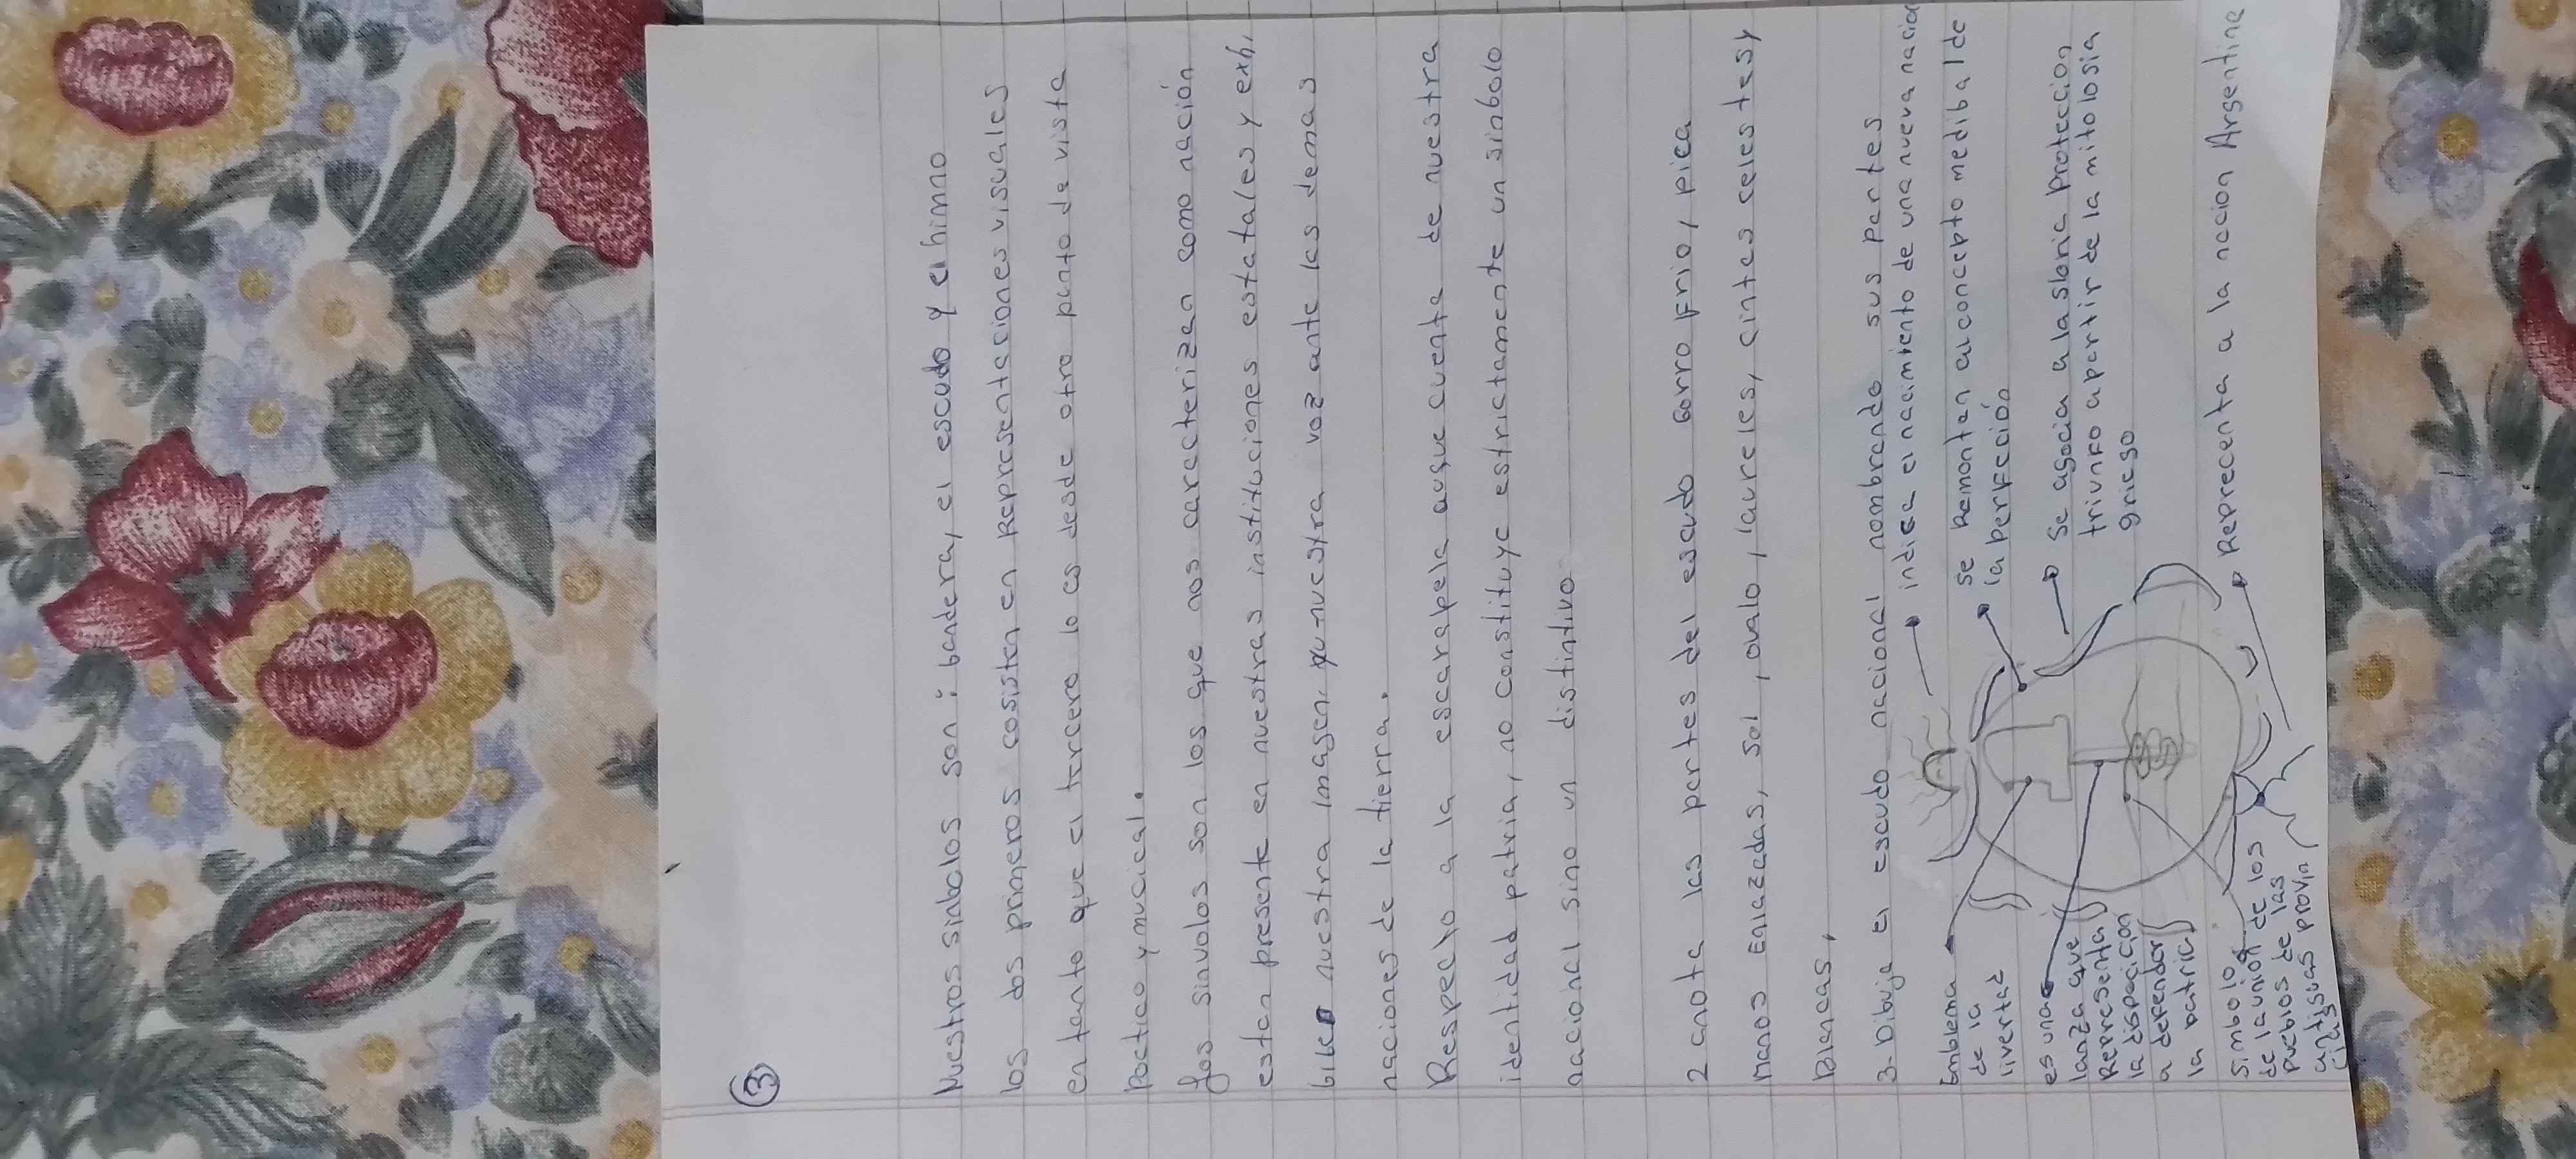 3
Nuestros sinbolos son: bandera, el escudo y el himno
los dos primeros cosisten en Representaciones visuales
en tanto que el tercero lo es desde otro punto de vista
Poetico y mucical.
Los sinvolos son los que nos caracterizan como nación
estan presente en nuestras instituciones estatales y exhi
bible nuestra imagen nuestra voz ante las demas
naciones de la tierra.
Respecto a la escarapela auque cuenta de nuestra
identidad patria, no constituye estrictamente un sinbolo
nacional sino un distintivo
2 anota las partes del escudo Gorro Frio, pica
Manos Enlazadas, Sol, ovalo, laureles, cintes celestes y
Blancas,
3- Dibuja el escudo nacional nombrando sus partes
indica el nacimiento de una nueva nacion
se Remontan al concepto mediba l de
la perfeción
Se asocian a la gloria protección
triunfo a partir de la mitologia
griego
Reprecenta a la nacion Argentina
Enblema
de la
livertad
es una
lanza que
Representa
la dispocicon
a defender
la patria
Simbolo
de la unión de los
pueblos de las
antisuas provin
cias